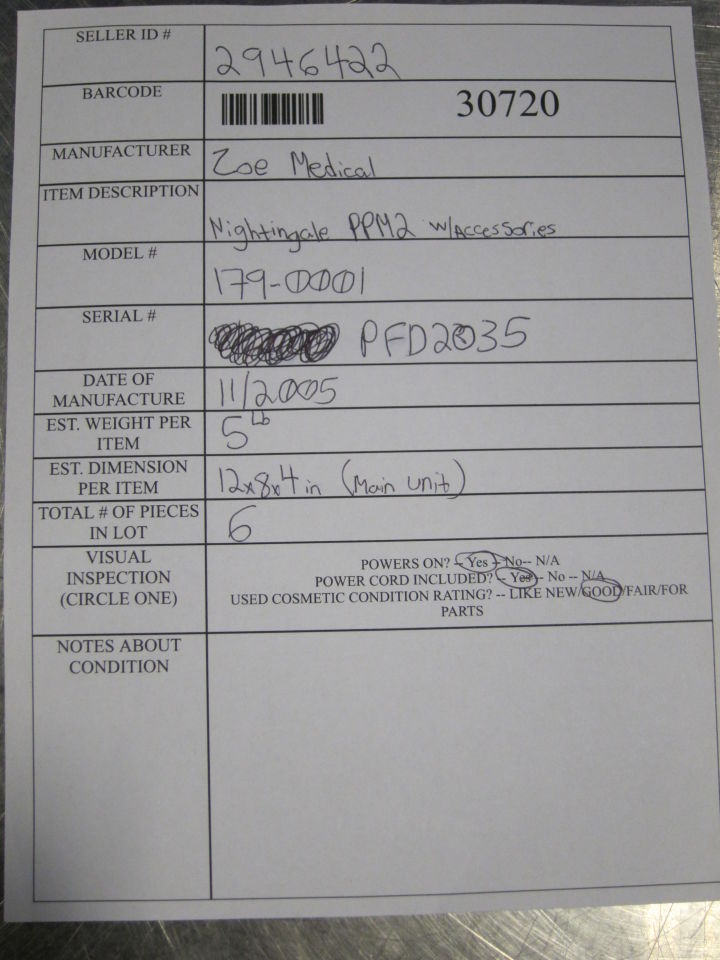 SELLER ID #
2946422
BARCODE
30720
MANUFACTURER
Zoe Medical
ITEM DESCRIPTION
Nightingale PPM2 w/Accessories
MODEL #
179-0001
SERIAL #
PFD2035
DATE OF
MANUFACTURE
11/2005
EST. WEIGHT PER
ITEM
5 Lb
EST. DIMENSION
PER ITEM
12x8x4 in (Main unit)
TOTAL # OF PIECES
IN LOT
6
VISUAL
INSPECTION
(CIRCLE ONE)
POWERS ON? -- Yes -- No-- N/A
POWER CORD INCLUDED? -- Yes-- No -- N/A
USED COSMETIC CONDITION RATING? -- LIKE NEW/GOOD/FAIR/FOR
PARTS
NOTES ABOUT
CONDITION